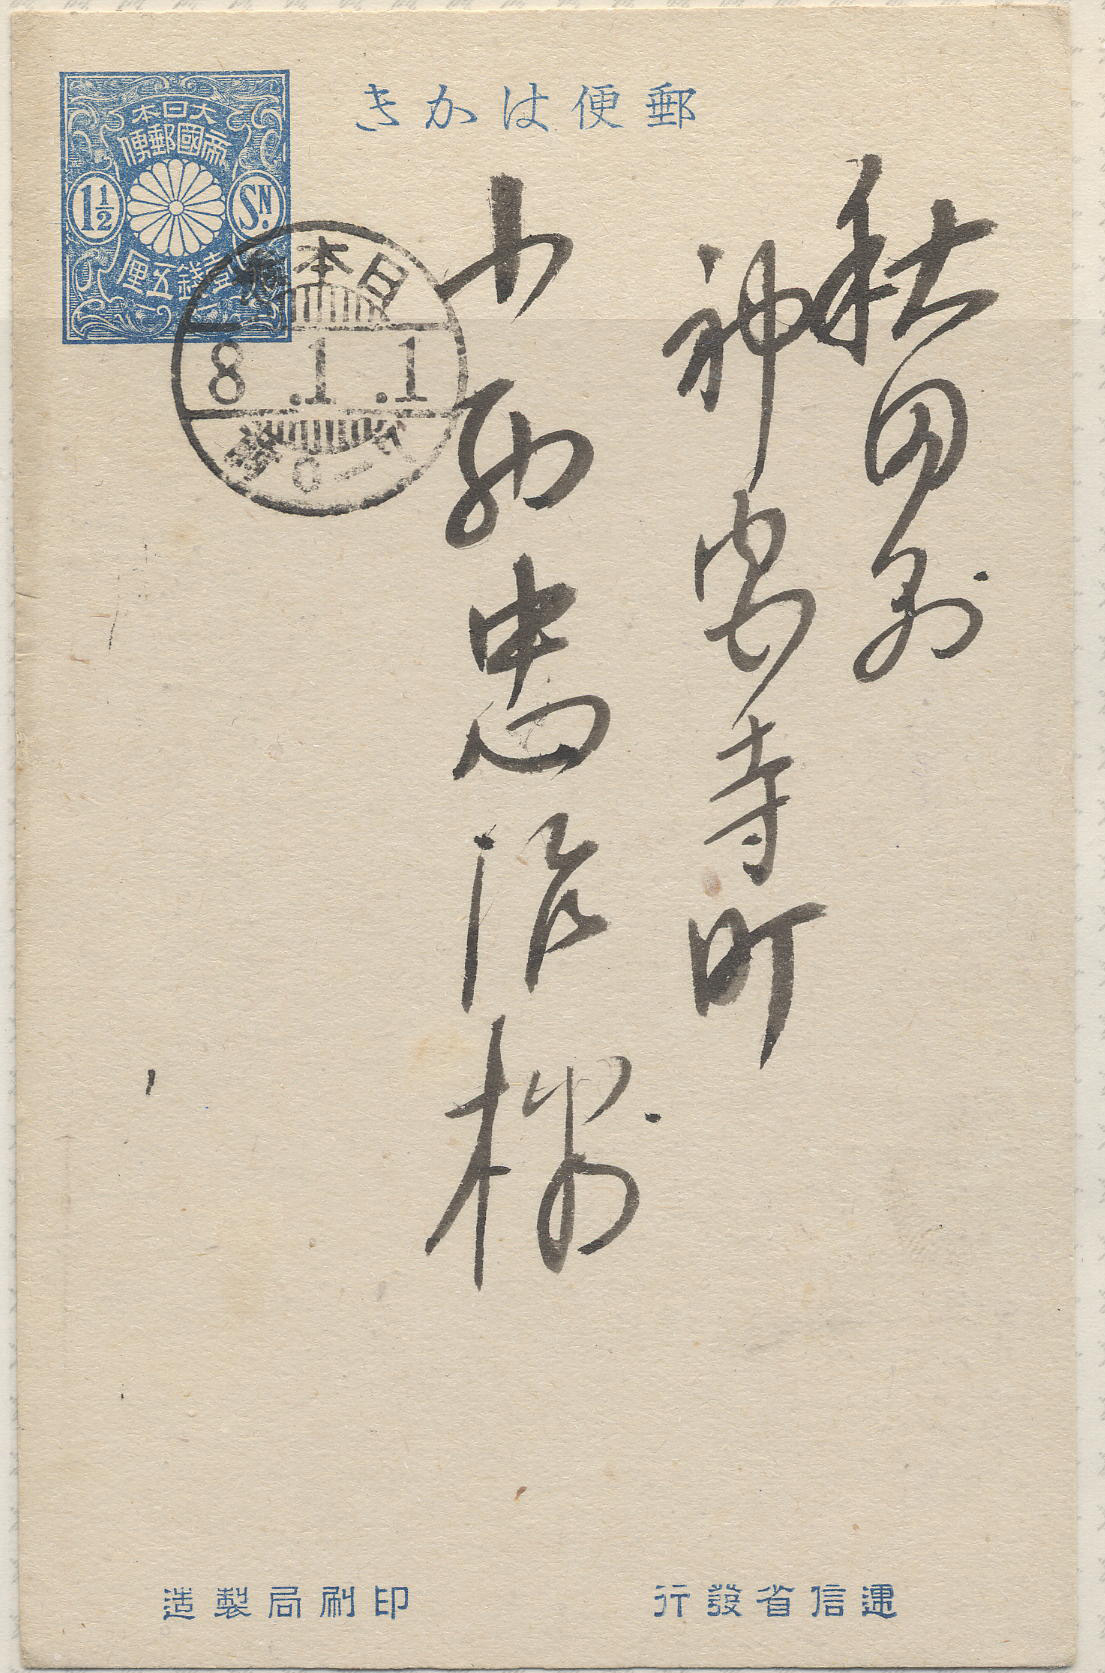 郵便はかき
大日本
帝國郵便
1½
SN.
壹錢五厘
日本橋
8.1.1
秋田縣
神宮寺町
小
忠治様
遞信省發行
印刷局製造